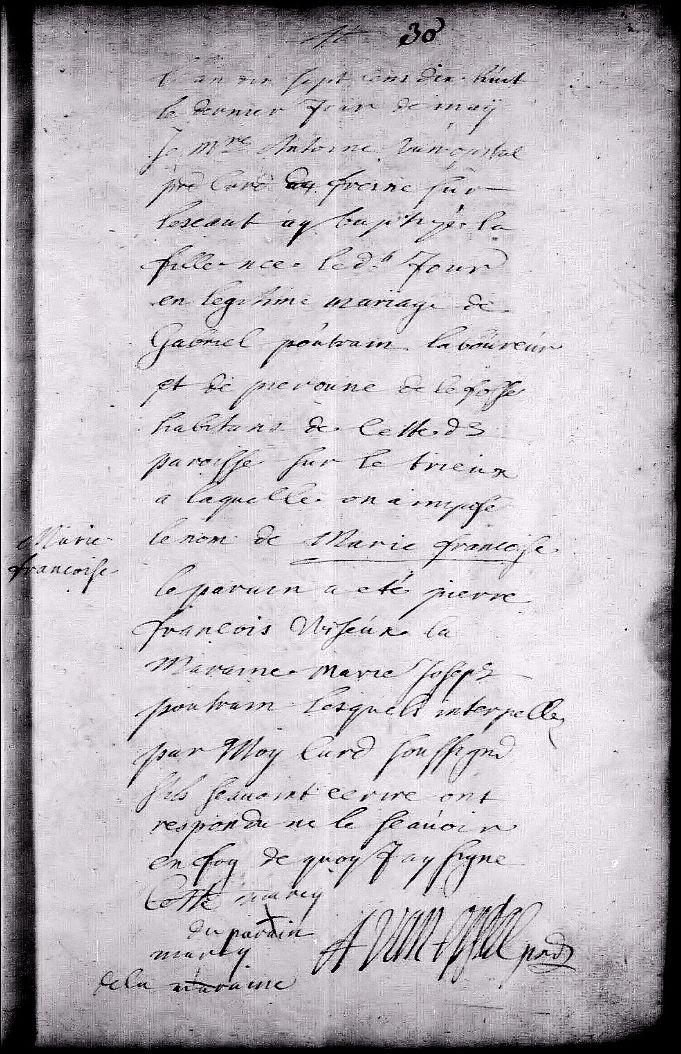 30
l'an dix sept cens dix huit
le dernier Jour de maÿ
Je mre Antoine Van opstal
prd Curé du fresne sur
lescaut aÿ baptizé la
fille née led.t Jour
en legitime mariage de
Gabriel poutrain laboureur
et de peronne de le fosse
habitans de Cette d
paroisse sur le trieux
a laquelle on a imposé
le nom de Marie francoise
Marie
francoise
le parain a eté pierre
francois la
Maraine Marie Joseph
poutrain lesquels interpellez
par Moy Curé soussigné
sils scavoint ecrire ont
respondu ne le scavoir
en foy de quoy J'ay signe
Cette
du parain
marcq
de la maraine
A Van opstal prd